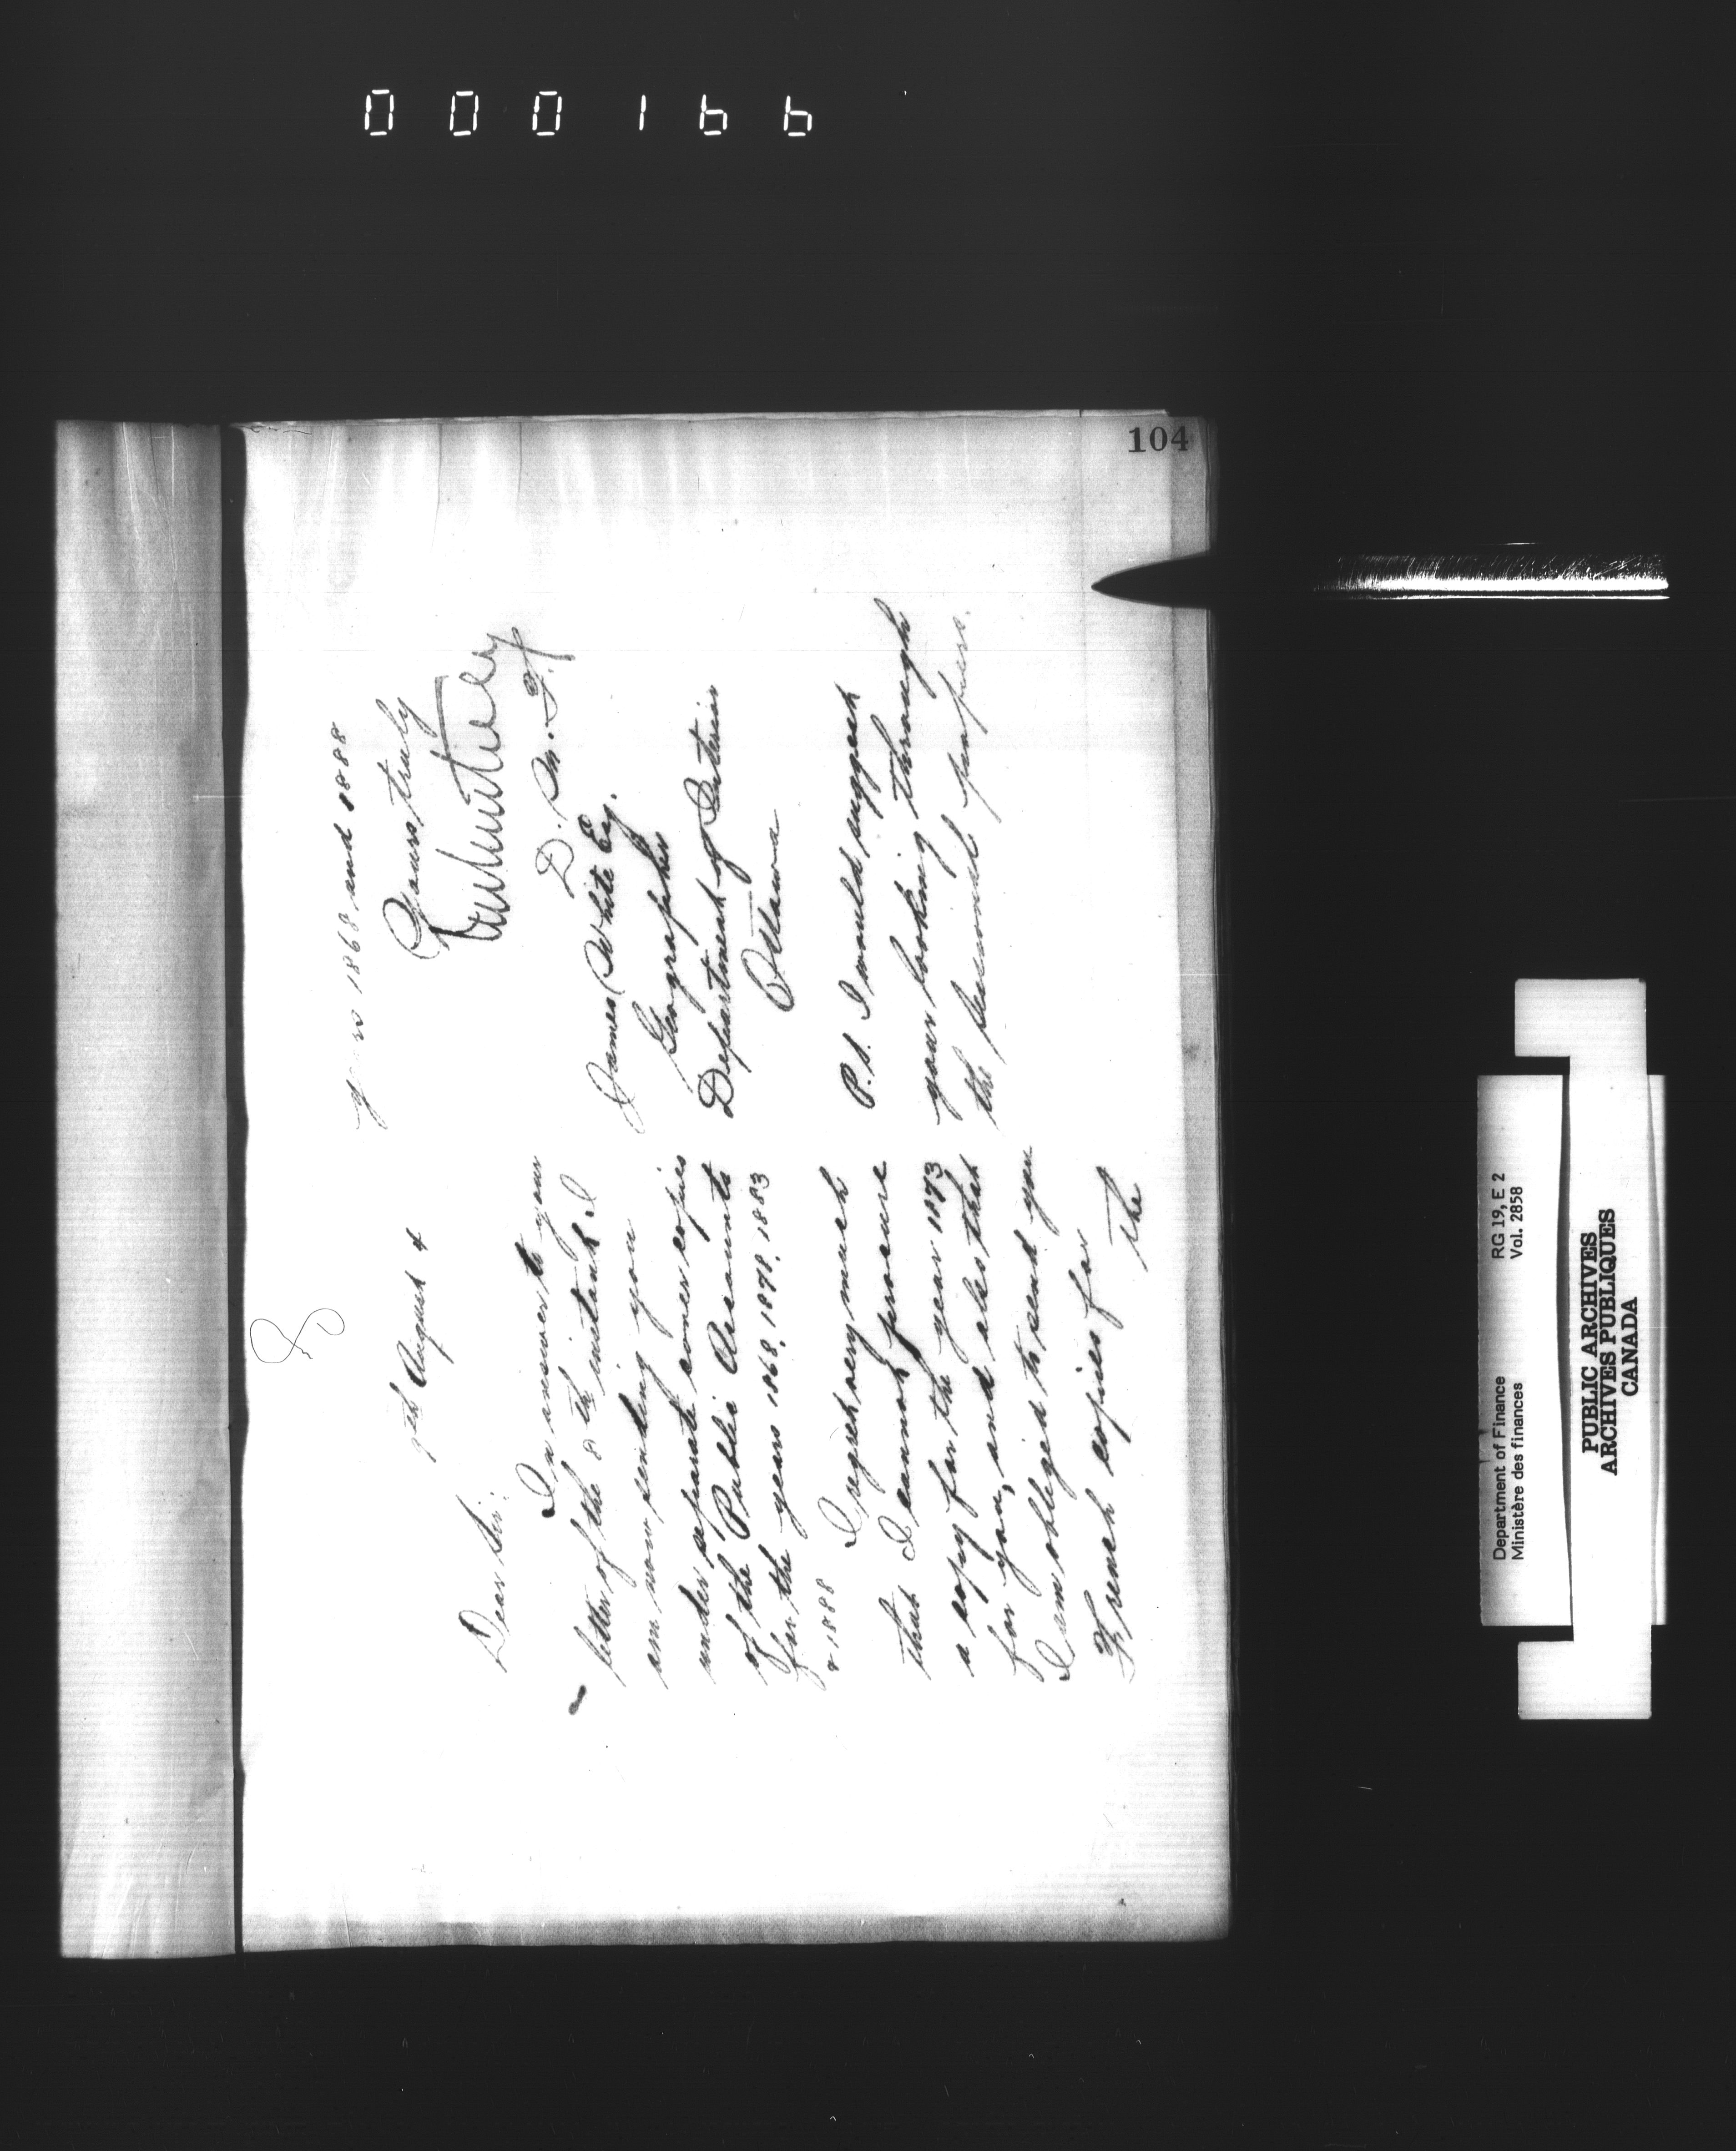 000166
104
9th August 4
Dear Sir:
In answer to your
letter of the 8th instant I
am now sending you
under separate cover copies
of the Public Accounts
for the years 1868, 1878, 1883
& 1888
I regret very much
that I cannot procure
a copy for the year 1873
for you, and also that
I am obliged to send you
French copies for
the
years 1868 and 1888
Yours truly
D. M. F.
James White Esq.
Geographer
Department of Interior
Ottawa
P.S. I would suggest
your looking through
the sessional papers.
Department of Finance RG 19, E 2
Ministère des finances Vol. 2858
PUBLIC ARCHIVES
ARCHIVES PUBLIQUES
CANADA